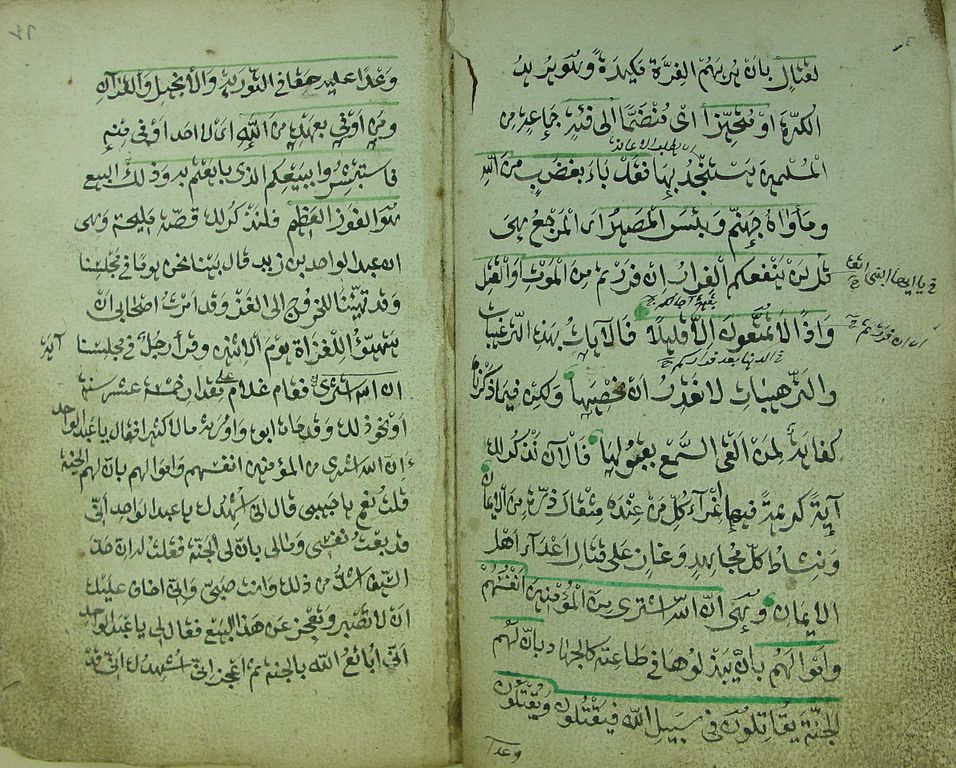 لقتال بان يريهم الفرة مكيدة وهو يريد
الكرة او متحيزا اى منضما الى فئة جماعة من
المسلمين يستنجد بها فقد باء بغضب من الله
وماواه جهنم وبئس المصير اى المرجع هى
قل لن ينفعكم الفرار ان فررتم من الموت او القتل
واذا لا تمتعون الا قليلا فالآيات بهذه الترغيبات
والترهيبات لا نقدر ان نحصيها ولكن فيما ذكرنا
كفاية لمن القى السمع بقبولها فالآن نذكر لك
آية كريمة فيها اغراء كل من عنده مثقال ذرة من الايمان
ونشاط كل مجاهد وغاز على قتال اعداء اهل
الايمان وهى ان الله اشترى من المؤمنين انفسهم
واموالهم بان يبذلوها فى طاعته كالجهاد بان لهم
الجنة يقاتلون فى سبيل الله فيقتلون ويقتلون
وعدا
وعدا عليه حقا فى التورية والانجيل والقرآن
ومن اوفى بعهده من الله اى لا احد اوفى منه
فاستبشروا ببيعكم الذى بايعتم به وذلك البيع
هو الفوز العظيم فلنذكر لك قصة مليحة وهى
ان عبد الواحد بن زيد قال بينا نحن يوما فى مجلسنا
وقد تهيئنا للخروج الى الغزو وقد امرت اصحابى ان
يتهيؤا للغزاة يوم الاثنين وقرأ رجل فى مجلسنا آية
ان الله اشترى فقام غلام على مقدار خمسة عشر سنة
او نحو ذلك وقد مات ابوه واورثه مالا كثيرا فقال يا عبد الواحد
ان الله اشترى من المؤمنين انفسهم واموالهم بان لهم الجنة
قلت نعم يا حبيبى قال انى اشهدك يا عبد الواحد انى
قد بعت نفسى ومالى بان لى الجنة فقلت له ان حد
السيف اشد من ذلك وانت صبى وانى اخاف عليك
ان لا تصبر وتعجز عن هذا البيع فقال لى يا عبد الواحد
انى ابائع الله بالجنة ثم اعجز انى اشهدك انى قد